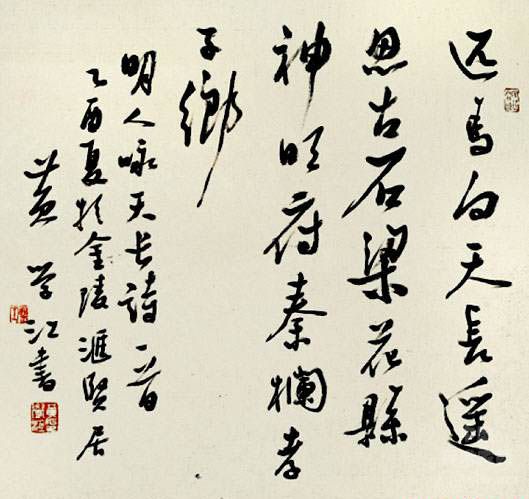 匹馬向天長遥
思古石梁花縣
神明府秦欄孝
子鄉
明人咏天長詩一首
乙酉夏於金陵滙賢居
黄学江書